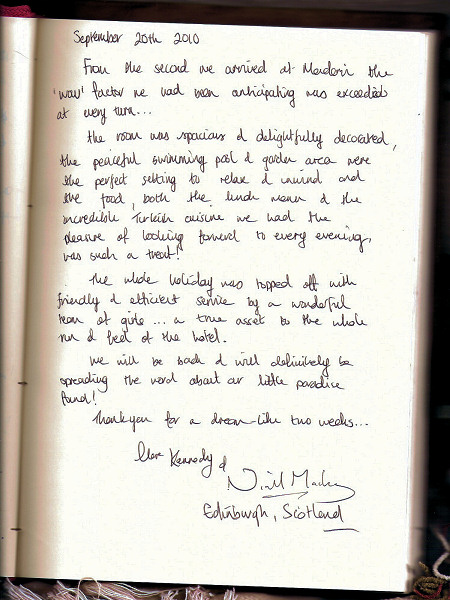 September 20th 2010
From the second we arrived at Mandarin the
'wow' factor we had been anticipating was exceeded
at every turn...
The room was spacious & delightfully decorated,
the peaceful swimming pool & garden area were
the perfect setting to relax & unwind and
the food, both the lunch menu & the
incredible Turkish cuisine we had the
pleasure of looking forward to every evening,
was such a treat!
The whole holiday was topped off with
friendly & efficient service by a wonderful
team of girls... a true asset to the whole
run & feel of the hotel.
We will be back & will definitively be
spreading the word about our little paradise
found!
Thankyou for a dream-like two weeks...
Kennedy &
Niall
Edinburgh, Scotland